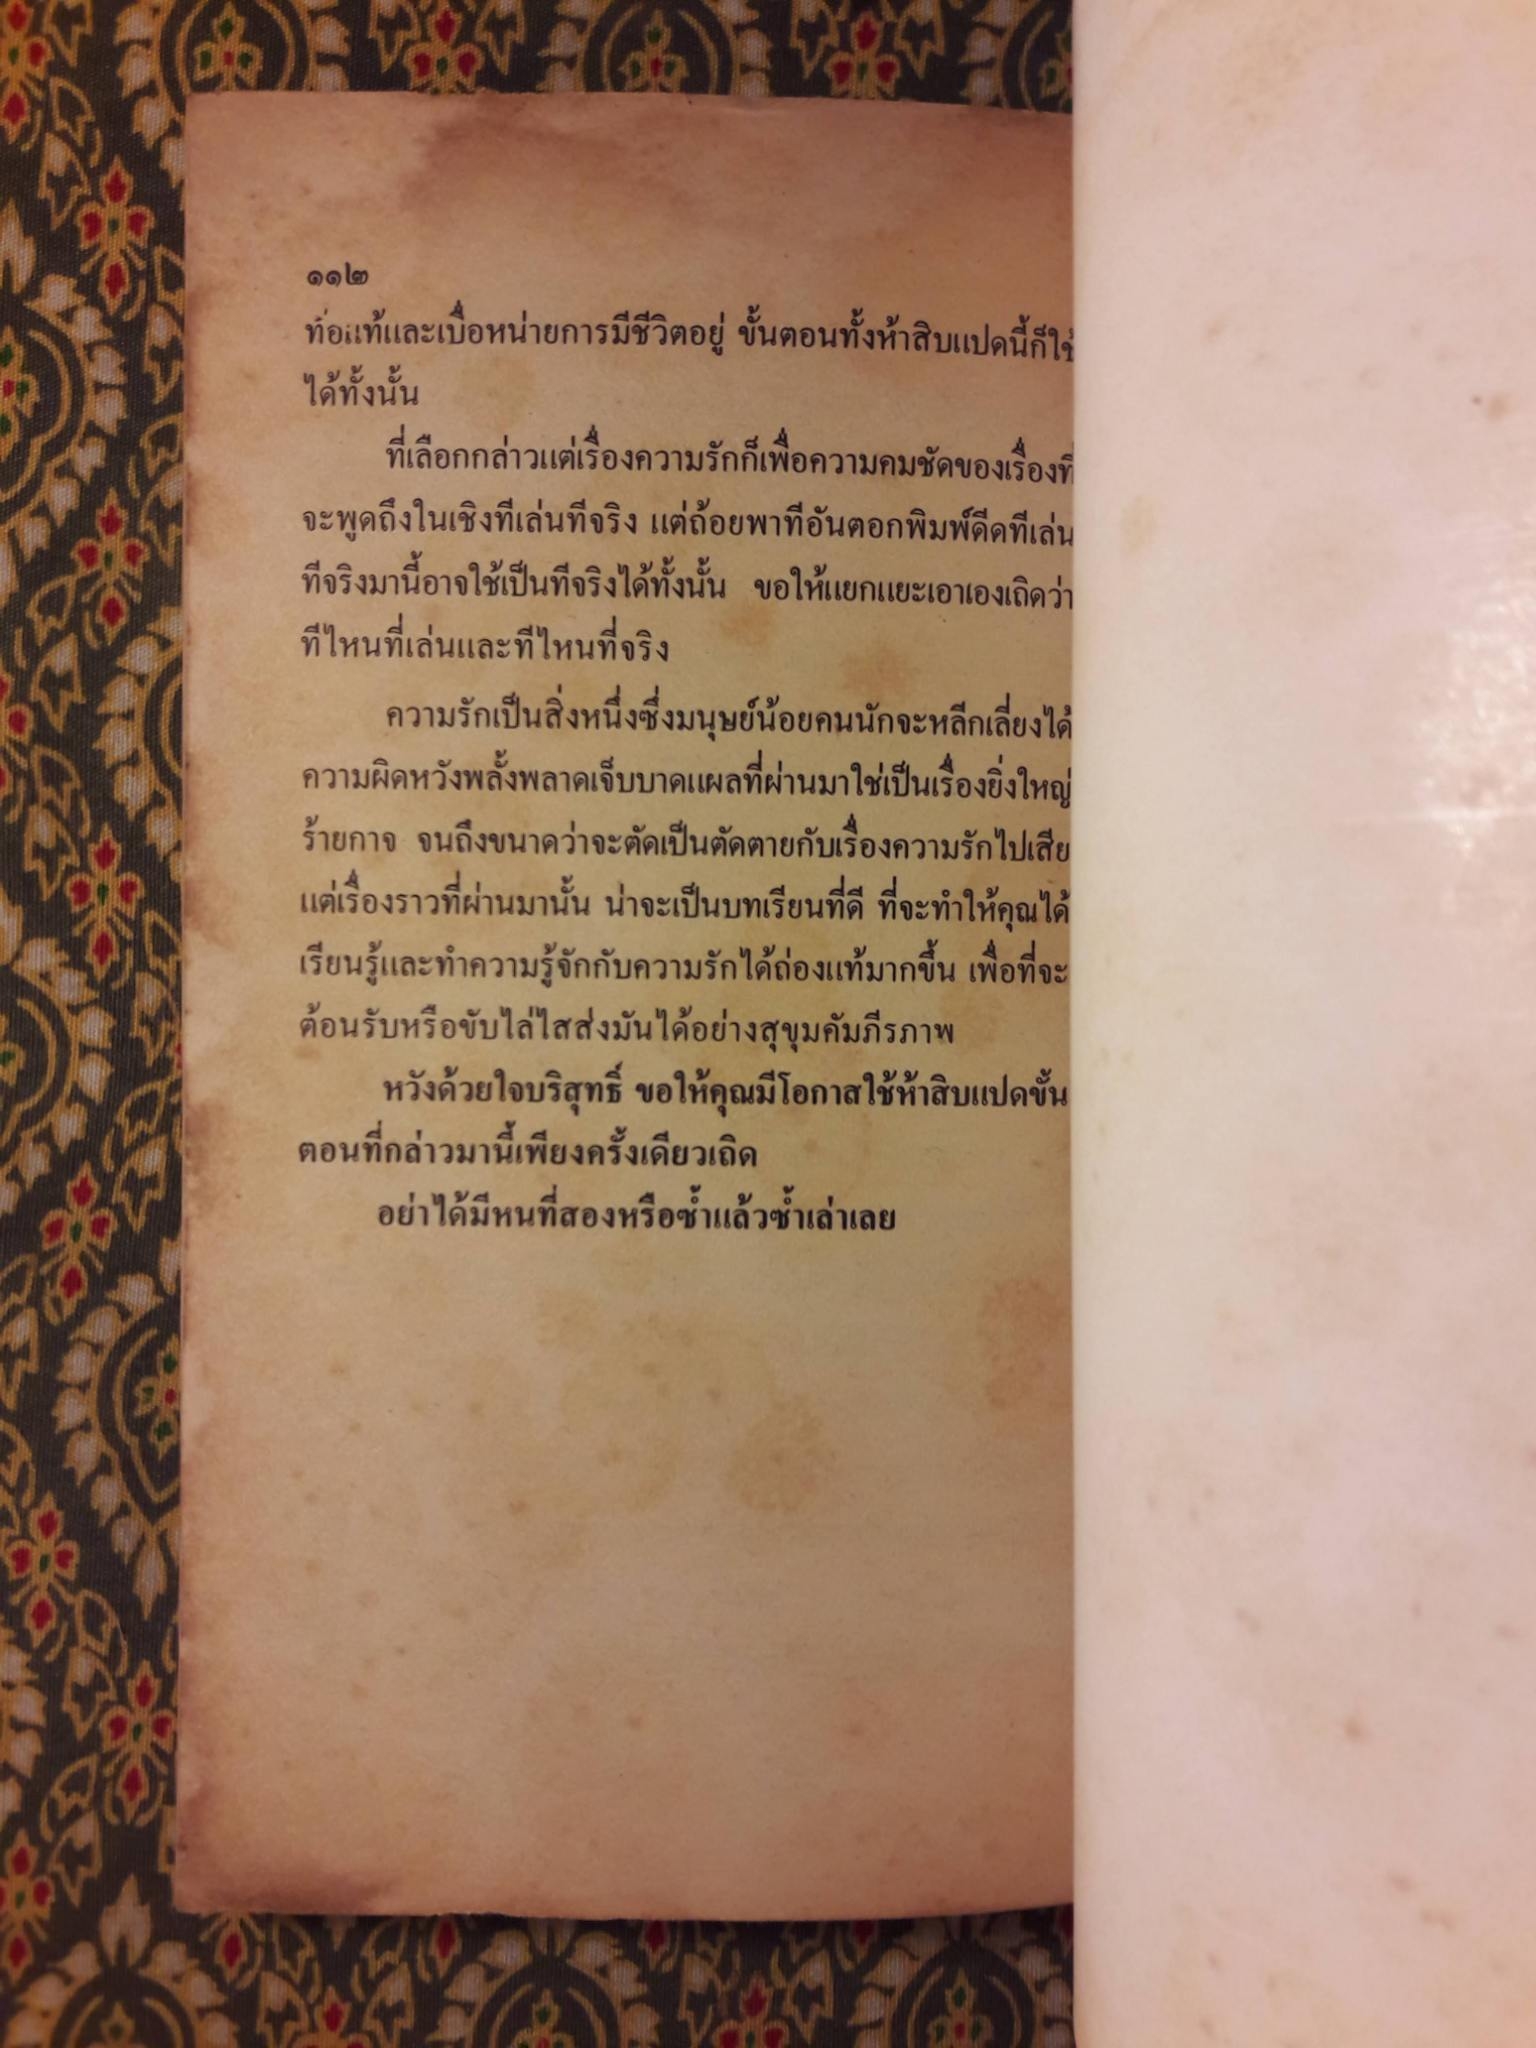 ๑๑๒
ท้อแท้และเบื่อหน่ายการมีชีวิตอยู่ ขั้นตอนทั้งห้าสิบแปดนี้ก็ใช้
ได้ทั้งนั้น
ที่เลือกกล่าวแต่เรื่องความรักก็เพื่อความคมชัดของเรื่องที่
จะพูดถึงในเชิงทีเล่นทีจริง แต่ถ้อยพาทีอันตอกพิมพ์ดีดทีเล่น
ทีจริงมานี้อาจใช้เป็นทีจริงได้ทั้งนั้น ขอให้แยกแยะเอาเองเถิดว่า
ทีไหนที่เล่นและทีไหนที่จริง
ความรักเป็นสิ่งหนึ่งซึ่งมนุษย์น้อยคนนักจะหลีกเลี่ยงได้
ความผิดหวังพลั้งพลาดเจ็บบาดแผลที่ผ่านมาใช่เป็นเรื่องยิ่งใหญ่
ร้ายกาจ จนถึงขนาดว่าจะตัดเป็นตัดตายกับเรื่องความรักไปเสีย
แต่เรื่องราวที่ผ่านมานั้น น่าจะเป็นบทเรียนที่ดี ที่จะทำให้คุณได้
เรียนรู้และทำความรู้จักกับความรักได้ถ่องแท้มากขึ้น เพื่อที่จะ
ต้อนรับหรือขับไล่ไสส่งมันได้อย่างสุขุมคัมภีรภาพ
หวังด้วยใจบริสุทธิ์ ขอให้คุณมีโอกาสใช้ห้าสิบแปดขั้น
ตอนที่กล่าวมานี้เพียงครั้งเดียวเถิด
อย่าได้มีหนที่สองหรือซ้ำแล้วซ้ำเล่าเลย